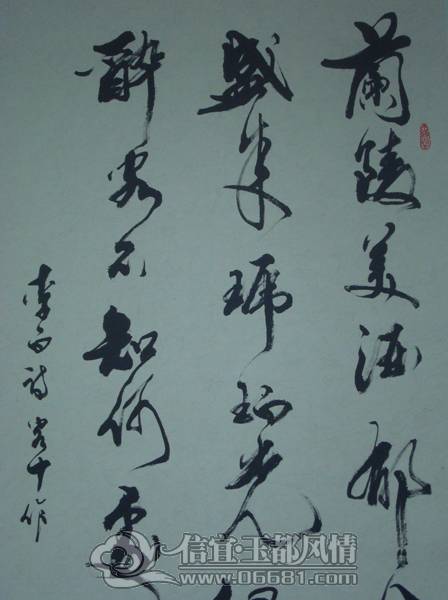 蘭陵美酒郁
盛来琥珀光
醉客不知何處
李白詩客中作
信宜玉都风情
www.06681.com